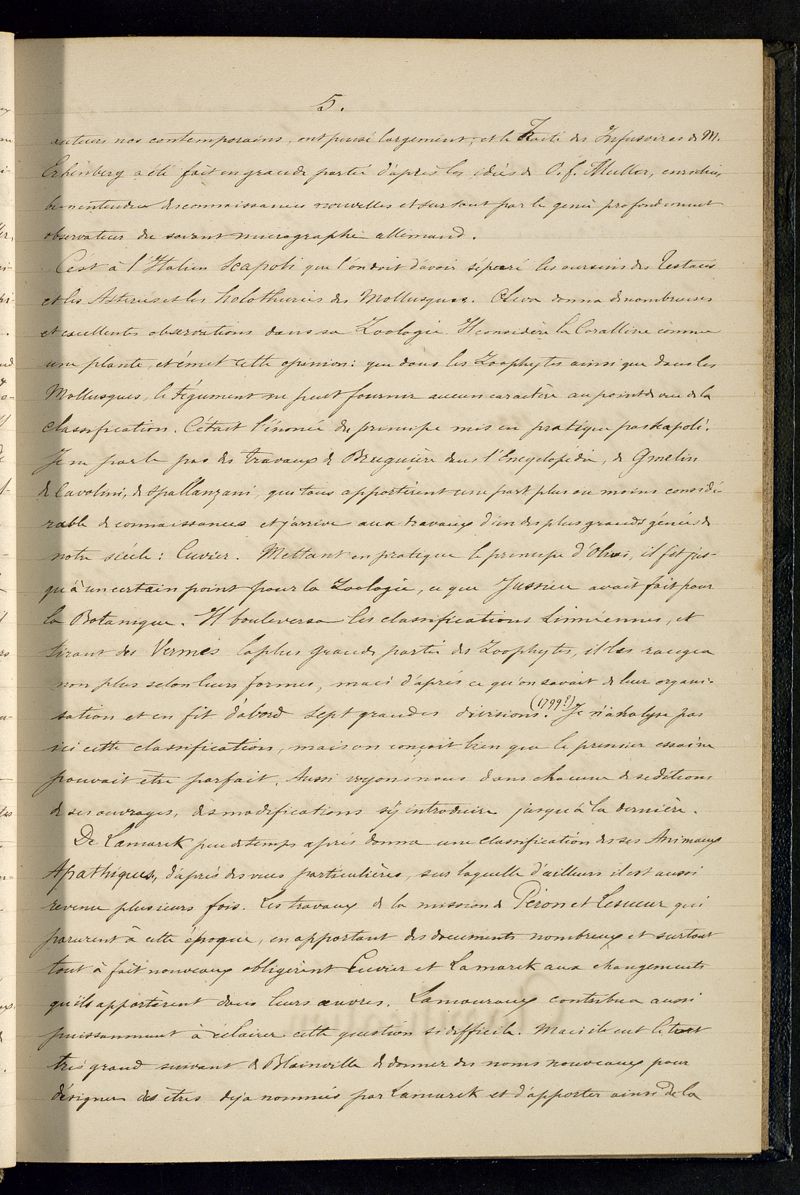 5.
auteurs nos contemporains, ont puisé largement; et le Traité des Infusoires de M.
Erhenberg a été fait en grande partie d'après les idées de O. f. Muller, enrichies,
bien entendu de connaissances nouvelles et surtout par le génie profondement
observateur du savant micrographe allemand.
C'est à l'Italien Scapoli que l'on doit d'avoir séparé les oursins des Testacés
et les Asteries et les holothuries des Mollusques. Oliva donna de nombreuses
et excellentes observations dans sa Zoologie. Il considère la Coralline comme
une plante, et émet cette opinion: que dans les Zoophytes ainsi que dans les
Mollusques, le tégument ne peut fournir aucun caractère au point de vue de la
classification. C'était l'énoncé du principe mis en pratique par Scapoli.
Je ne parle pas des travaux de Bruguière dans l'Encyclopédie, de Gmelin
de Cavolini, de Spallanzani, qui tous apportèrent une part plus ou moins considé
rable de connaissances et j'arrive aux travaux d'un des plus grands génies de
notre siècle: Cuvier. Mettant en pratique le principe d'Olivi, il fit jus-
qu'à un certain point pour la Zoologie, ce que Jussieu avait fait pour
la Botanique. Il bouleversa les classifications Linnéennes, et
tirant des Vermes la plus grande partie des Zoophytes, il les rangea
non plus selon leurs formes, mais d'après ce qu'on savait de leur organi-
sation et en fit d'abord sept grandes divisions. (1799?) Je n'analyse pas
ici cette classification, mais on conçoit bien que le premier essai ne
pouvait être parfait. Aussi voyons nous dans chacune des editions
de ses ouvrages, des modifications s'y introduire jusqu'à la dernière.
De Lamarck peu de temps après donna une classification de ses Animaux
Apathiques, d'après des vues particulières, sur laquelle d'ailleurs il est aussi
revenu plusieurs fois. Les travaux de la mission de Péron et Lesueur qui
parurent à cette époque, en apportant des documents nombreux et surtout
tout à fait nouveaux obligèrent Cuvier et Lamarck aux changements
qu'ils apportèrent dans leurs œuvres. Lamouroux contribua aussi
puissamment à éclairer cette question si difficile. Mais il eut le tort
très grand suivant de Blainville de donner des noms nouveaux pour
désigner des êtres deja nommés par Lamarck et d'apporter ainsi de la